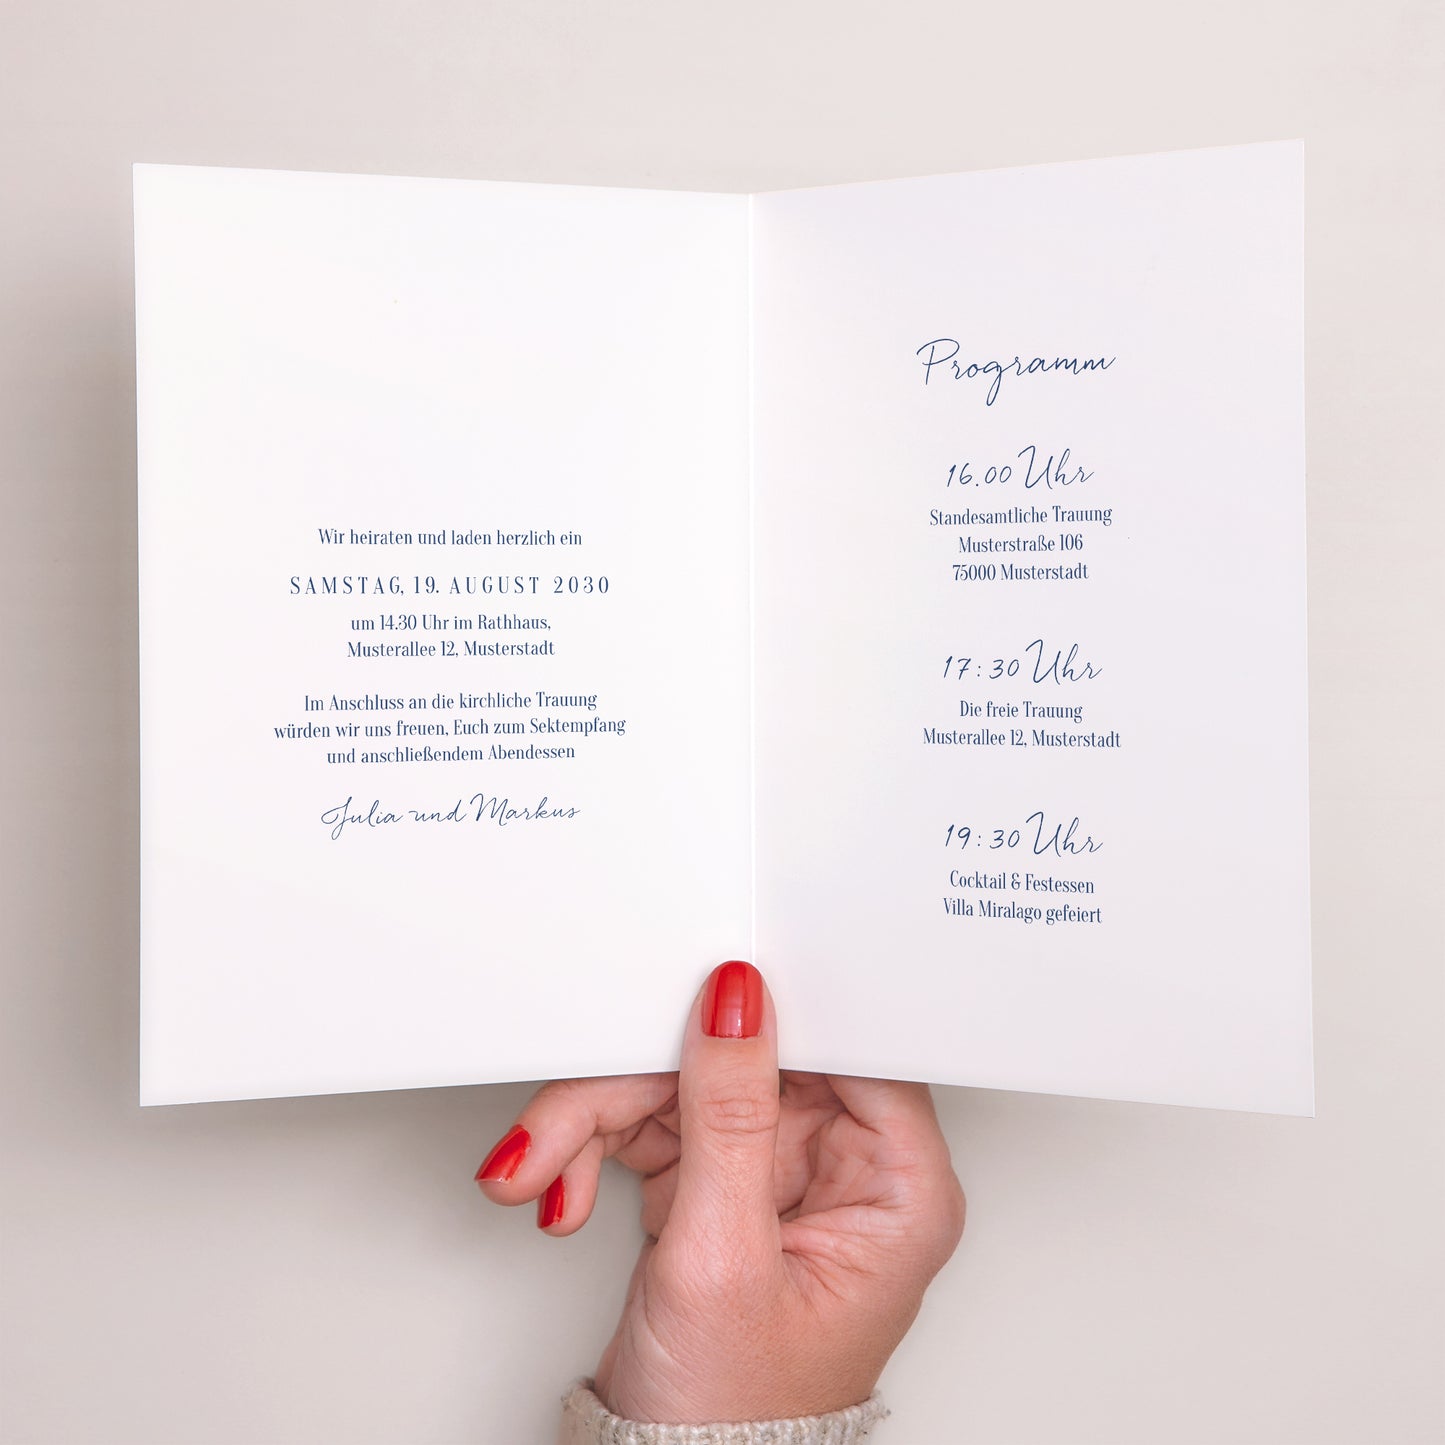 Wir heiraten und laden herzlich ein
SAMSTAG, 19. AUGUST 2030
um 14.30 Uhr im Rathhaus,
Musterallee 12, Musterstadt
Im Anschluss an die kirchliche Trauung
würden wir uns freuen, Euch zum Sektempfang
und anschließendem Abendessen
Julia und Markus
Programm
16.00 Uhr
Standesamtliche Trauung
Musterstraße 106
75000 Musterstadt
17:30 Uhr
Die freie Trauung
Musterallee 12, Musterstadt
19:30 Uhr
Cocktail & Festessen
Villa Miralago gefeiert